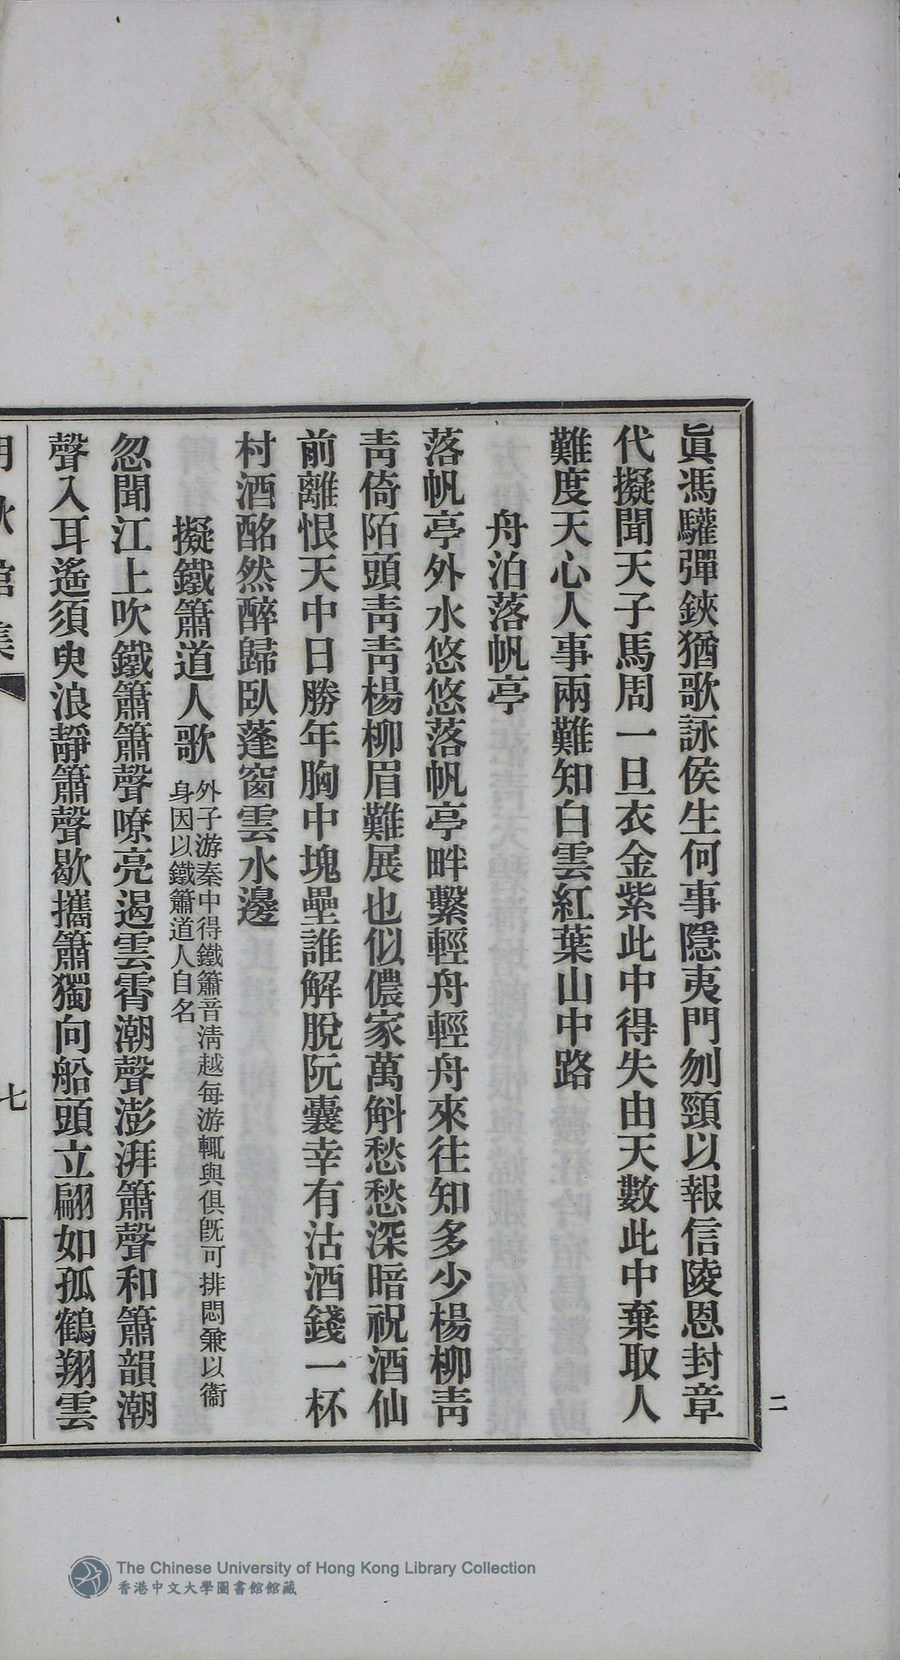 眞馮驩彈鋏猶歌詠侯生何事隱夷門刎頸以報信陵恩封章
代擬聞天子馬周一旦衣金紫此中得失由天數此中棄取人
難度天心人事兩難知白雲紅葉山中路
舟泊落帆亭
落帆亭外水悠悠落帆亭畔繫輕舟輕舟來往知多少楊柳靑
靑倚陌頭靑靑楊柳眉難展也似儂家萬斛愁愁深暗祝酒仙
前離恨天中日勝年胸中塊壘誰解脫阮囊幸有沽酒錢一杯
村酒酩然醉歸臥蓬窗雲水邊
擬鐵簫道人歌
外子游秦中得鐵簫音淸越每游輒與俱旣可排悶兼以衞
身因以鐵簫道人自名
忽聞江上吹鐵簫簫聲嘹亮遏雲霄潮聲澎湃簫聲和簫韻潮
聲入耳遙須臾浪靜簫聲歇攜簫獨向船頭立翩如孤鶴翔雲
七
二
The Chinese University of Hong Kong Library Collection
香港中文大學圖書館館藏